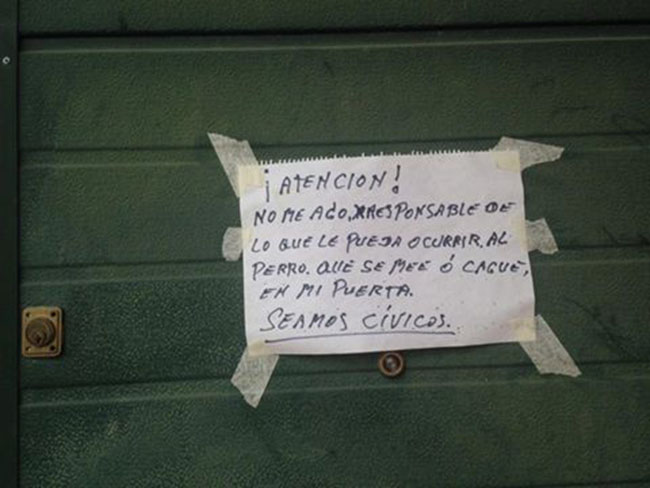 ¡ATENCION!
NO ME AGO, RESPONSABLE DE
LO QUE LE PUEDA OCURRIR, AL
PERRO. QUE SE MEE Ó CAGUE,
EN MI PUERTA.
SEAMOS CÍVICOS.